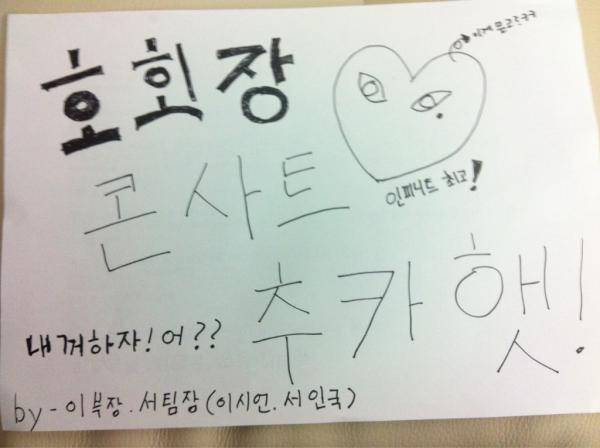 호회장
이게 몬고ㅋㅋ
인피니트 최고!
콘사트
추카햇!
내꺼하자! 어??
by - 이부장. 서팀장 (이시언. 서인국)